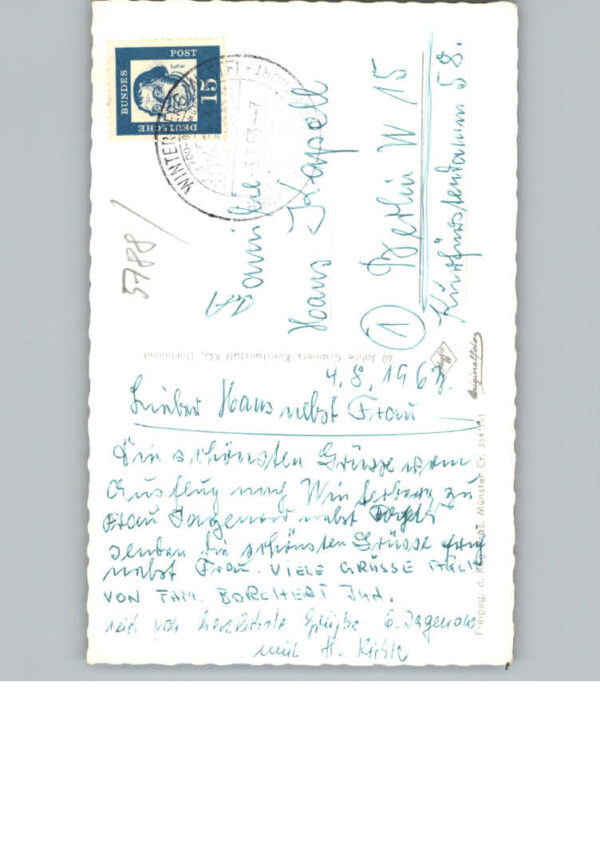 DEUTSCHE
BUNDES
POST
15
Luther
WINTERBERG
5788
An
Familie
Hans Kapell
1 Berlin W 15
Kurfürstendamm 58.
60 Jahre Cramers Kunstanstalt KG., Dortmund
Originalfoto
4.8.1963.
Lieber Hans nebst Frau
Die schönsten Grüsse vom
Ausflug nach Winterberg zu
Frau Jagenow nebst
senden die schönsten Grüsse
nebst Frau. VIELE GRÜSSE
VON FAM. BORCHERT JUN.
herzlichste Grüße Jagenow
und H.
Freigeg. d. Reg. Präs. Münster